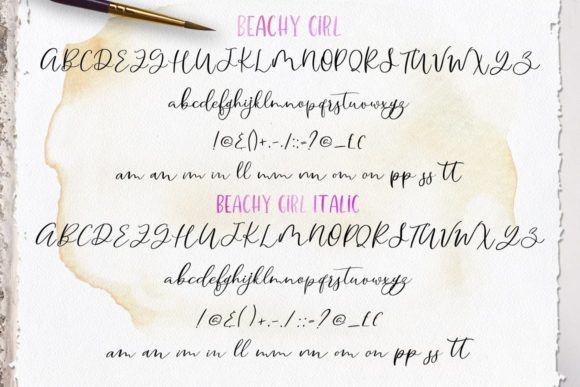 BEACHY GIRL
ABCDEFGHIJKLMNOPQRSTUVWXYZ
abcdefghijklmnopqrstuvwxyz
!@&()+.-./::-?@_[(
am an rm in ll mm nn om on pp ss tt
BEACHY GIRL ITALIC
ABCDEFGHIJKLMNOPQRSTUVWXYZ
abcdefghijklmnopqrstuvwxyz
!@&()+.-./::-?@_[(
am an rm in ll mm nn om on pp ss tt